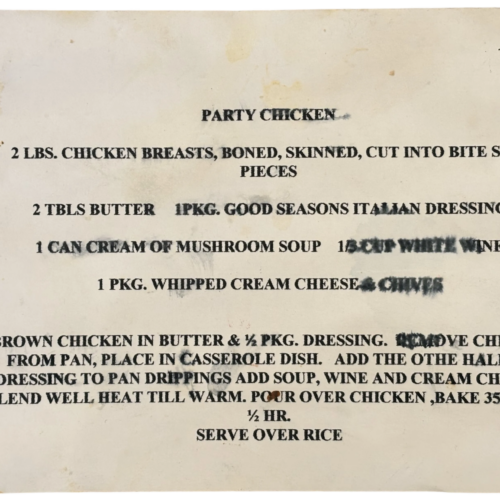 PARTY CHICKEN
2 LBS. CHICKEN BREASTS, BONED, SKINNED, CUT INTO BITE S
PIECES
2 TBLS BUTTER 1PKG. GOOD SEASONS ITALIAN DRESSING
1 CAN CREAM OF MUSHROOM SOUP 1/3 CUP WHITE WINE
1 PKG. WHIPPED CREAM CHEESE & CHIVES
BROWN CHICKEN IN BUTTER & ½ PKG. DRESSING. REMOVE CHI
FROM PAN, PLACE IN CASSEROLE DISH. ADD THE OTHE HALF
DRESSING TO PAN DRIPPINGS ADD SOUP, WINE AND CREAM CH
LEND WELL HEAT TILL WARM. POUR OVER CHICKEN ,BAKE 35
½ HR.
SERVE OVER RICE